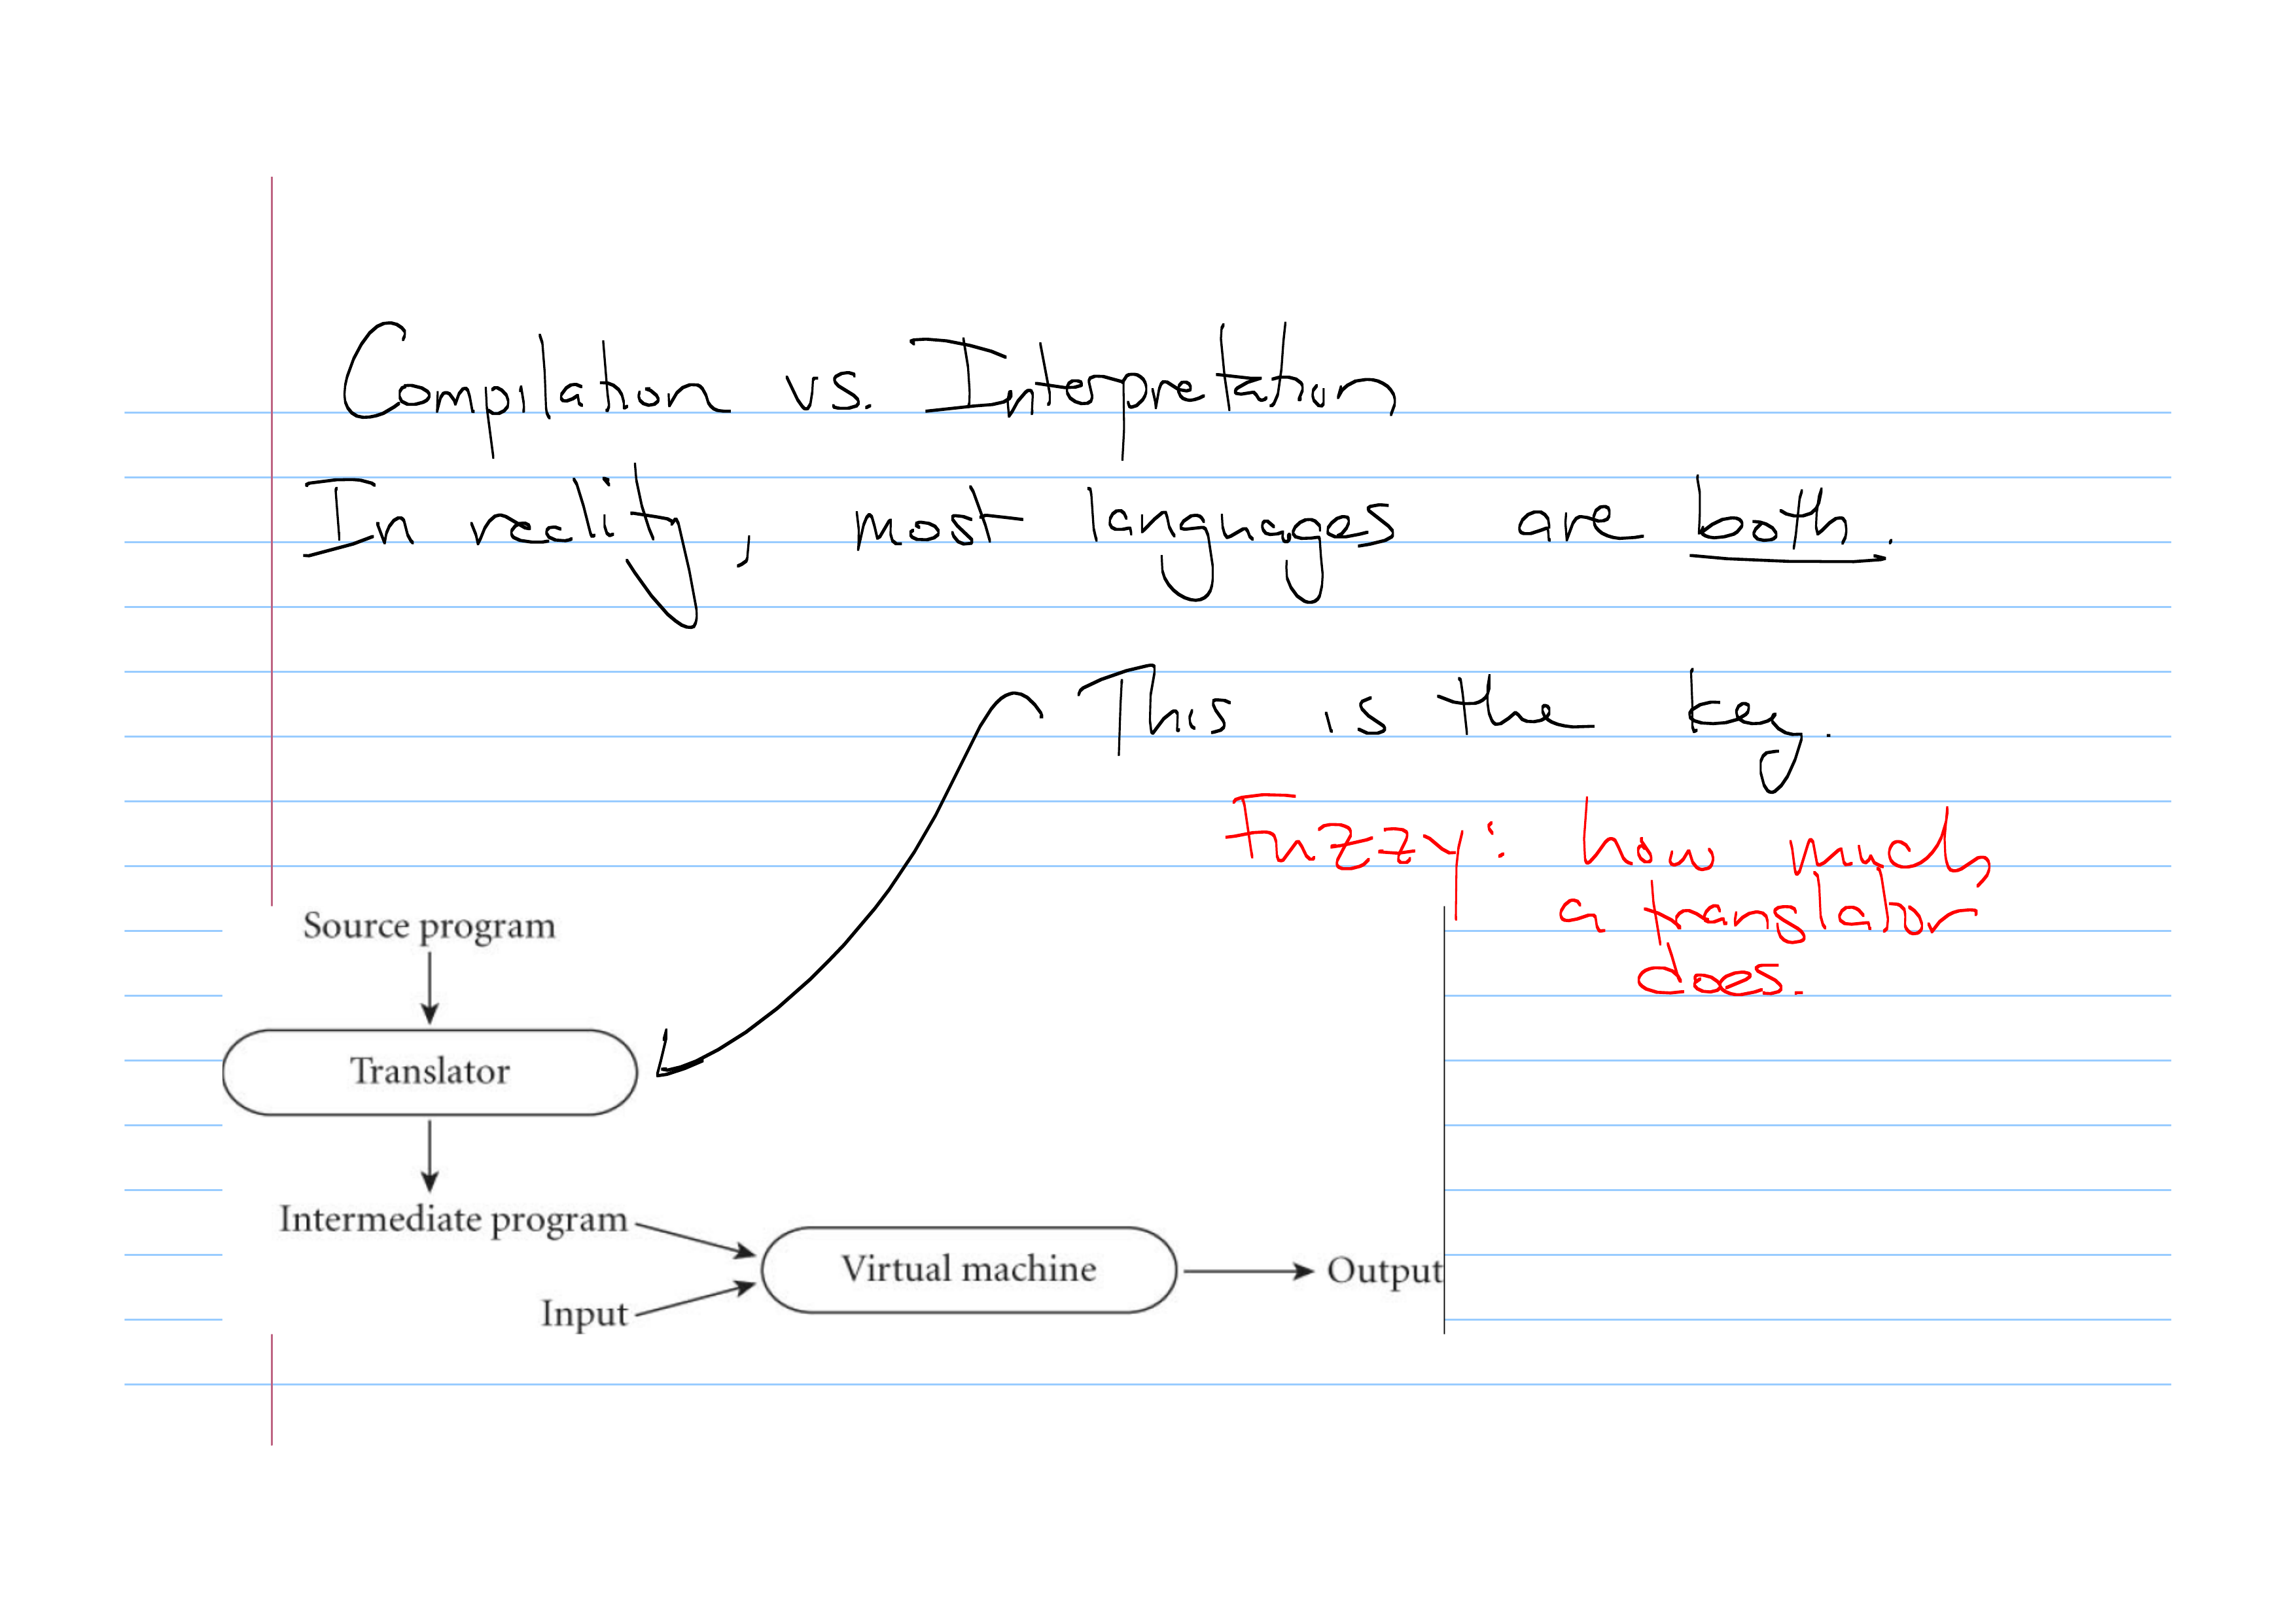 Compilation vs. Interpretation
In reality, most languages are both.
This is the key.
Fuzzy: how much
a translator
does.
Source program
Translator
Intermediate program
Virtual machine
Output
Input